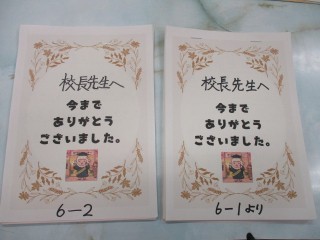 校長先生へ
今まで
ありがとう
ございました。
6-2
校長先生へ
今まで
ありがとう
ございました。
6-1より